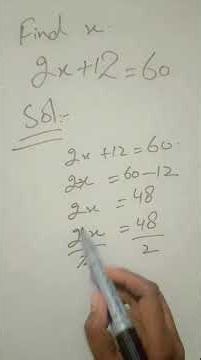 Find x.
2x+12=60
Sol:-
2x+12=60.
2x = 60-12
2x = 48
2x/2 = 48/2